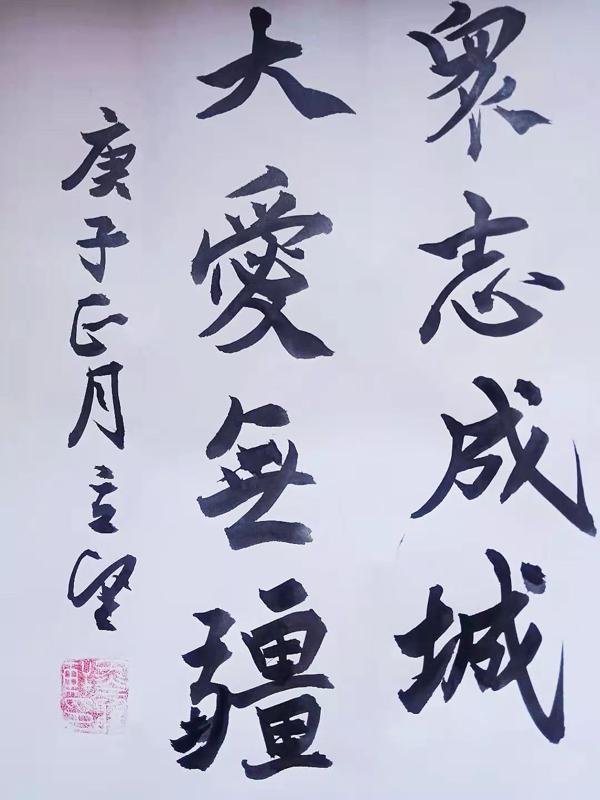 眾志成城
大愛無疆
庚子正月立望